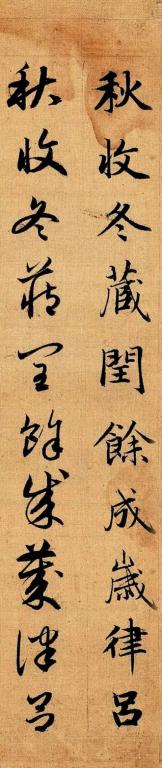 秋收冬藏閏餘成歲律呂
秋收冬藏閏餘成歲律呂